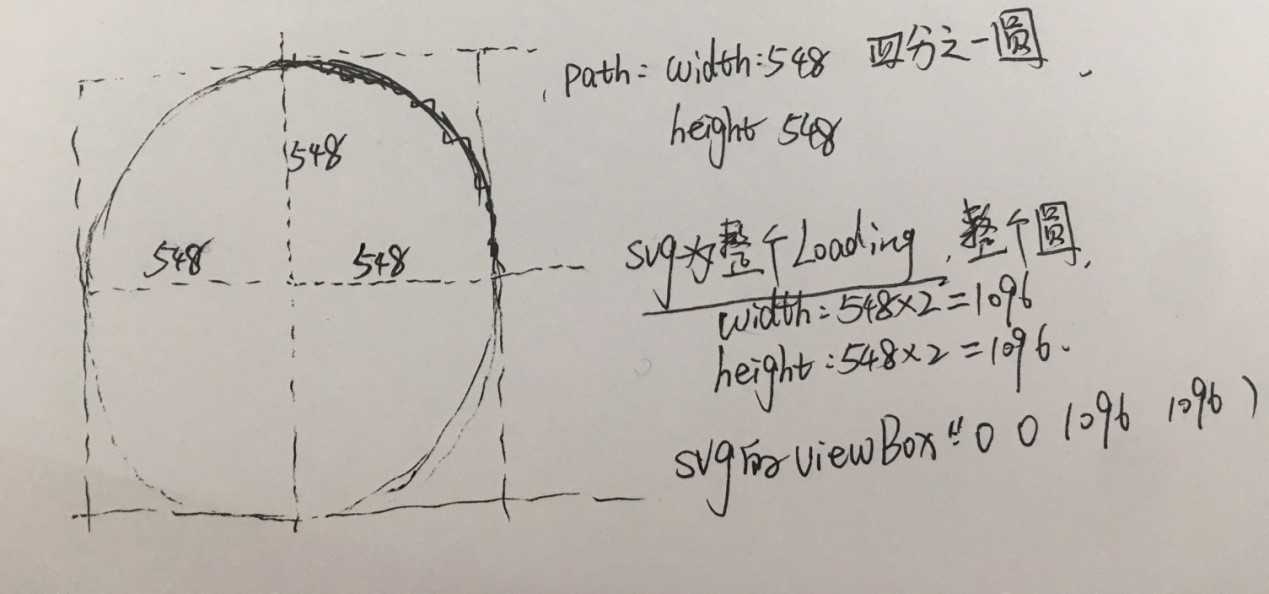 548
548
548
path: width:548 四分之一圆
height 548
svg为整个Loading,整个圆,
width:548×2=1096
height:548×2=1096.
svg的viewBox"0 0 1096 1096)